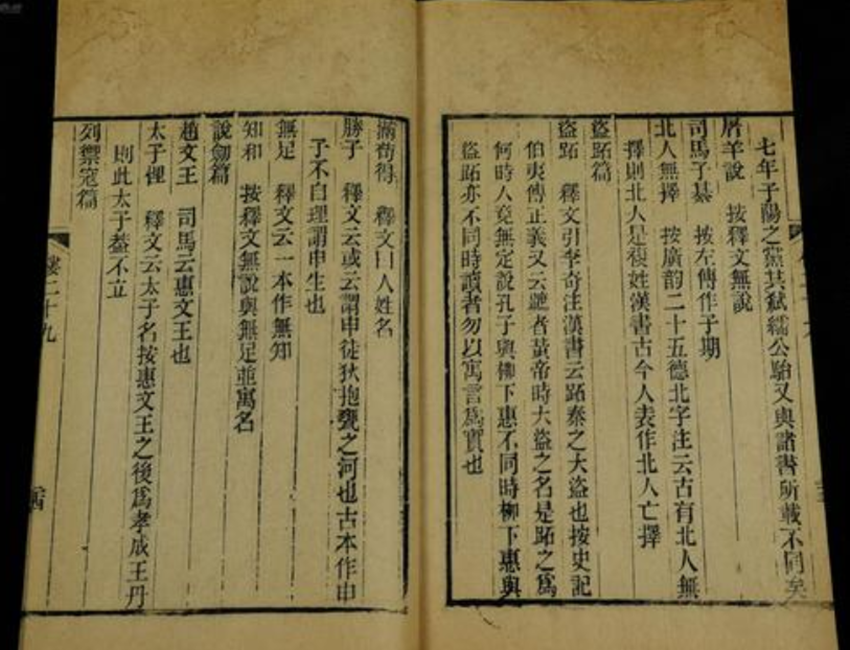 七年子陽之黨其弒繻公駘又與諸書所載不同矣
屠羊說　按釋文無說
司馬子綦　按左傳作子期
北人無擇　按廣韵二十五德北字注云古有北人無
擇則北人是複姓漢書古今人表作北人亡擇
盜跖篇
盜跖　釋文引李奇注漢書云跖秦之大盜也按史記
伯夷傳正義又云蹠者黃帝時大盜之名是跖之爲
何時人竟無定說孔子與柳下惠不同時柳下惠與
盜跖亦不同時讀者勿以寓言爲實也
滿苟得　釋文曰人姓名
勝子　釋文云或云謂申徒狄抱甕之河也古本作申
子不自理謂申生也
無足　釋文云一本作無知
知和　按釋文無說與無足並寓名
說劒篇
趙文王　司馬云惠文王也
太子悝　釋文云太子名按惠文王之後爲孝成王丹
則此太子葢不立
列禦寇篇
樓二十九